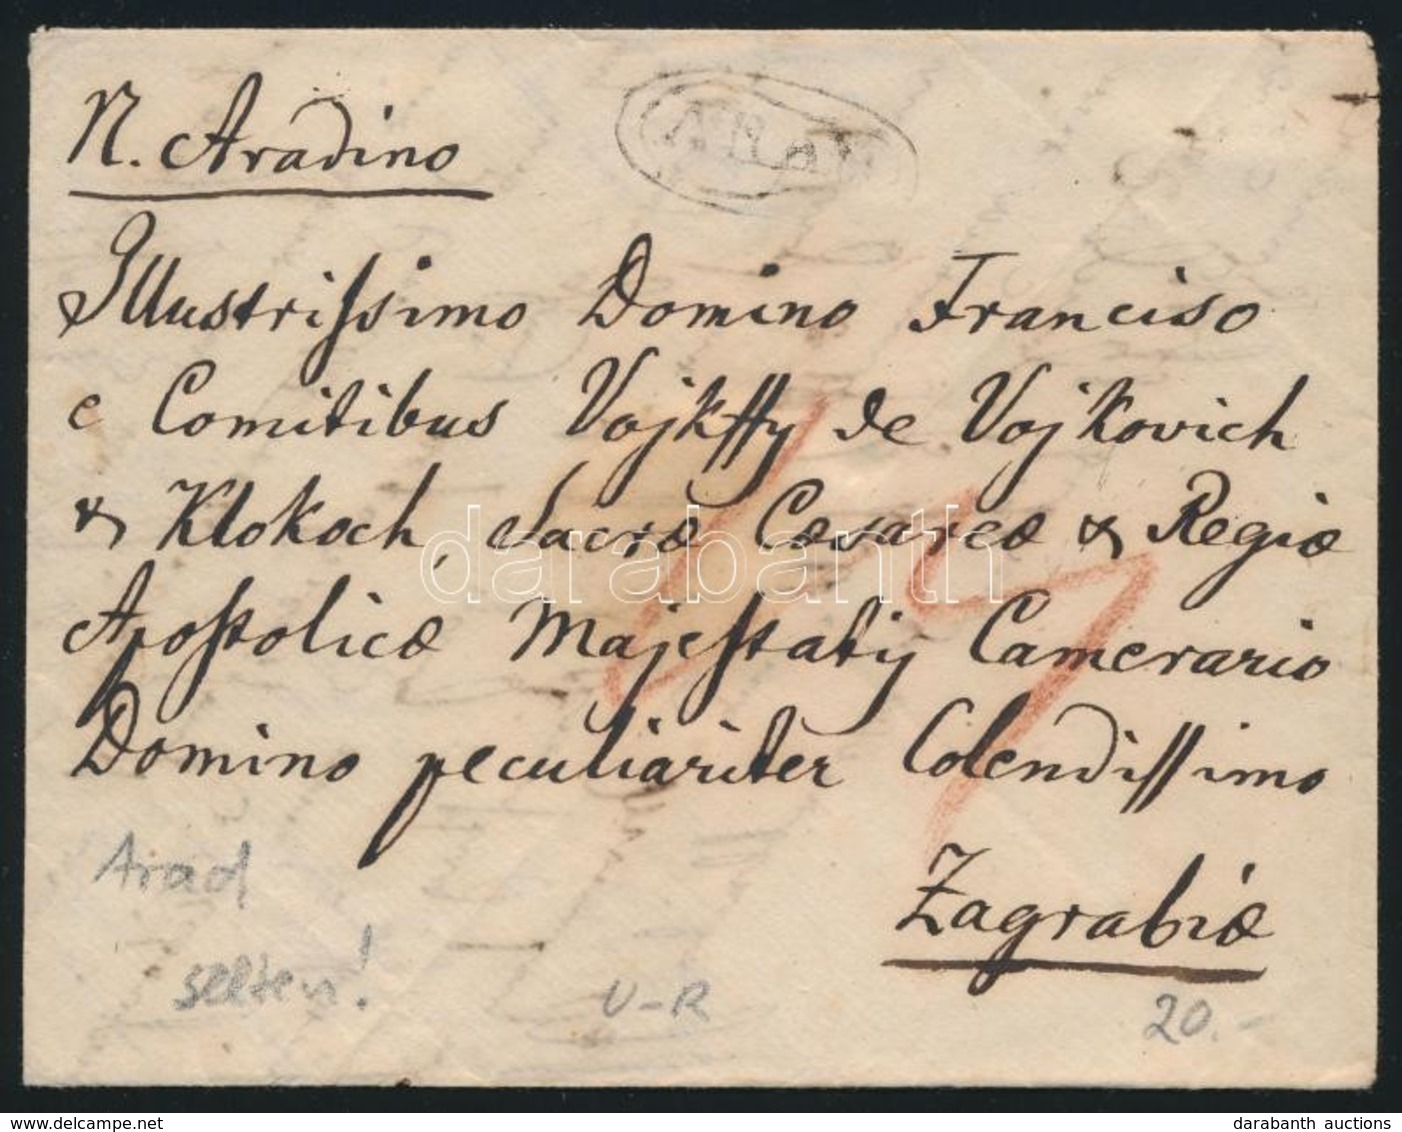 N. Aradino
ARAD
Illustrissimo Domino Franciso
e Comitibus Vojkffy de Vojkovich
& Klokoch, Sacræ Cæsareæ & Regiæ
Apostolicæ Majestatis Camerario
Domino peculiariter Colendissimo
Zagrabiæ
Arad
selten!
U-R
20.-
darabanth
darabanth auctions